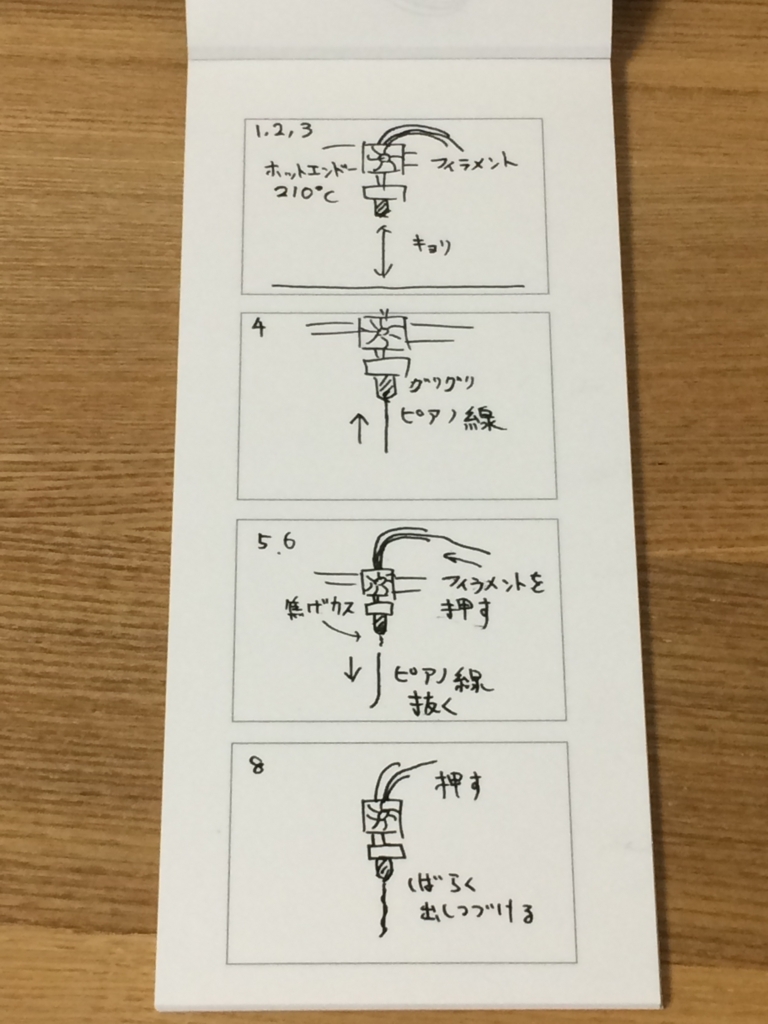 1,2,3
ホットエンド
210℃
フィラメント
キョリ
4
グリグリ
ピアノ線
5.6
フィラメントを
押す
焦げカス
ピアノ線
抜く
8
押す
しばらく
出しつづける